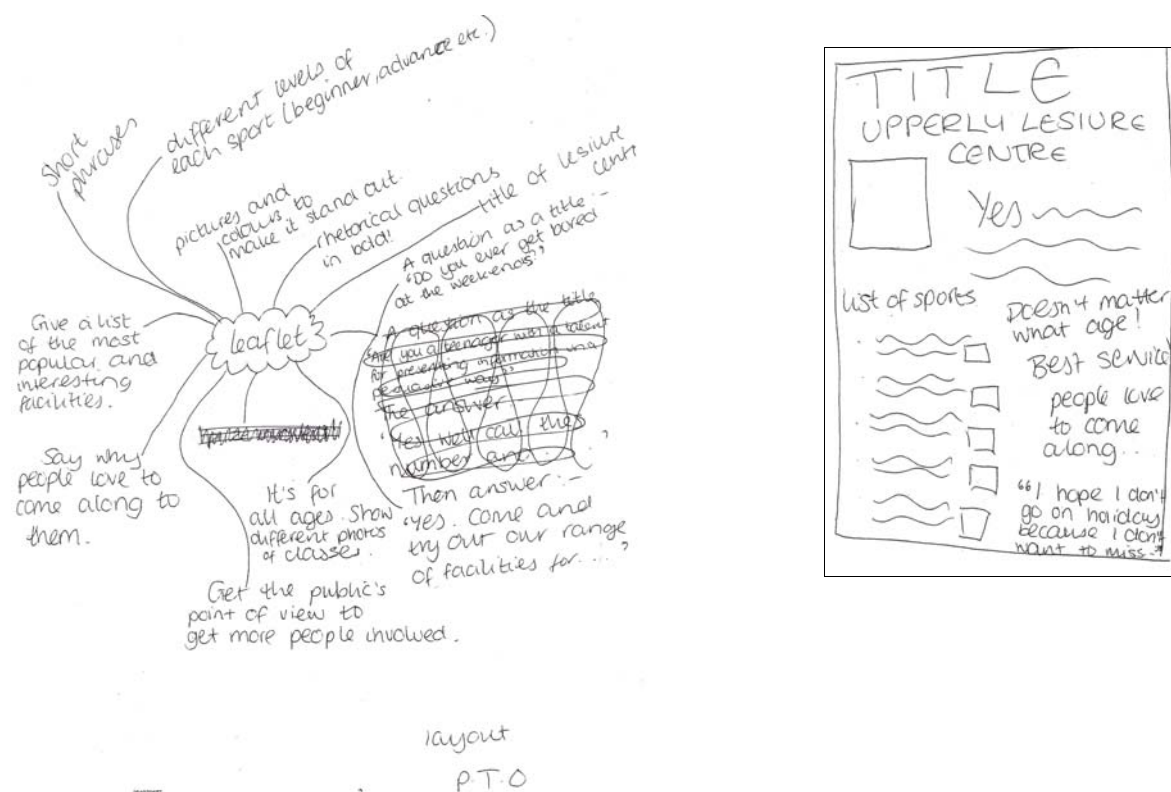 Short
phrases
different levels of
each sport (beginner, advance etc.)
pictures and
colours to
make it stand out.
rhetorical questions
in bold!!
title of lesiure
centr
A question as a title :-
"Do you ever get bored
at the weekends?"
leaflet
A question as the title
"Are you a teenager with a talent
for presenting information in a
persuasive way?"
The answer
"Yes well call this
number and
Then answer :-
"Yes. Come and
try out our range
of facilities for....."
Give a list
of the most
popular and
interesting
facilities.
Say why
people love to
come along to
them.
It's for
all ages. Show
different photos
of classes.
Get the public's
point of view to
get more people involved.
layout
P.T.O
TITLE
UPPERLY LESIURE
CENTRE
Yes
list of sports
Doesn't matter
what age!
Best service
people love
to come
along..
"I hope I don't
go on holiday
because I don't
want to miss.."